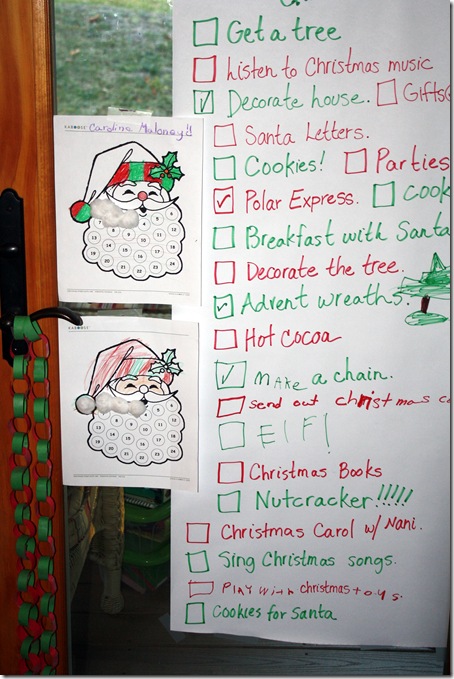 Get a tree
Listen to Christmas music
Decorate house. Gifts
Santa Letters.
Cookies! Parties
Polar Express. Cook
Breakfast with Santa
Decorate the tree.
Advent wreaths.
Hot Cocoa
make a chain.
Send out christmas ca
Elf!
Christmas Books
Nutcracker!!!!!
Christmas Carol w/ Nani.
Sing Christmas songs.
Play with christmas toys.
Cookies for Santa
KABOOSE
Carolina Maloney
KABOOSE